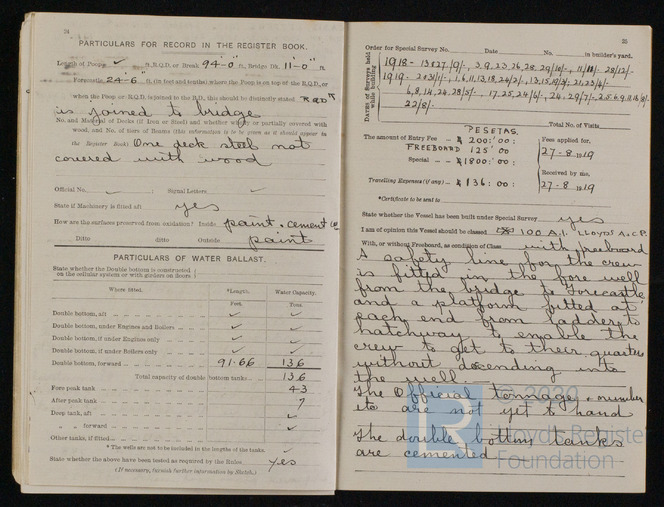 24
PARTICULARS FOR RECORD IN THE REGISTER BOOK.
Length of Poop ✓ ft., R.Q.D. or Break 94-0" ft., Bridge Dk. 11-0" ft.
Forecastle 24-6" ft. (in feet and tenths) where the Poop is on top of the R.Q.D. or
when the Poop or R.Q.D. is joined to the B.D., this should be distinctly stated
is joined to bridge
No. and Material of Decks (if Iron or Steel) and whether wholly or partially covered with
wood, and No. of tiers of Beams (this information is to be given as it should appear in
the Register Book) One deck steel not
covered with wood
Official No. ✓ ; Signal Letters ✓
State if Machinery is fitted aft yes
How are the surfaces preserved from oxidation? Inside paint & cement
Ditto ditto Outside paint
PARTICULARS OF WATER BALLAST.
State whether the Double bottom is constructed
on the cellular system or with girders on floors
Where fitted. *Length. Water Capacity.
Feet. Tons.
Double bottom, aft ✓ ✓
Double bottom, under Engines and Boilers ✓ ✓
Double bottom, if under Engines only ✓ ✓
Double bottom, if under Boilers only ✓ ✓
Double bottom, forward 91.66 136
Total capacity of double bottom tanks 136
Fore peak tank 43
After peak tank 7
Deep tank, aft ✓
" " forward ✓
Other tanks, if fitted
* The wells are not to be included in the lengths of the tanks.
State whether the above have been tested as required by the Rules Yes
(If necessary, furnish further information by Sketch.)
25
Order for Special Survey No. Date No. in builder's yard.
DATES of Surveys held
while building
22/8.
Total No. of Visits
PESETAS.
The amount of Entry Fee 200:00:
FREEBOARD 125 00
Special 1800:00:
Travelling Expenses (if any) 136:00:
Fees applied for,
27-8-1919
Received by me,
27-8-1919
*Certificate to be sent to
State whether the Vessel has been built under Special Survey yes
I am of opinion this Vessel should be classed 100 A.1. LLOYDS A.&C.P.
With, or without Freeboard, as condition of Class with freeboard
A safety line for the crew
is fitted in the fore well
from the bridge to forecastle
and a platform fitted at
each end from ladder to
hatchway to enable the
crew to get to their quarters
without decending into
the well
The Official tonnage & number
etc are not yet to hand
The double bottom tanks
are cemented
Lloyd's Register
Foundation